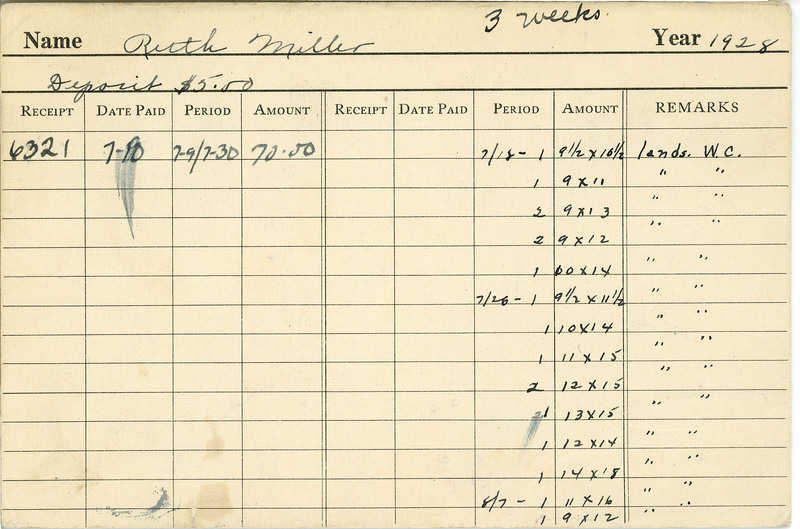 3 weeks.
Name Ruth Miller Year 1928
Deposit $5.00
RECEIPT DATE PAID PERIOD AMOUNT RECEIPT DATE PAID PERIOD AMOUNT REMARKS
6321 7-10 7-9/7-30 70.00 7/18- 1 9½ x 10½ lands. W.C.
1 9 x 11 " "
2 9 x 13 " "
2 9 x 12 " "
1 10 x 14 " "
7/26- 1 9½ x 11½ " "
1 10 x 14 " "
1 11 x 15 " "
2 12 x 15 " "
1 13 x 15 " "
1 12 x 14 " "
1 14 x 18 " "
8/7- 1 11 x 16 " "
1 9 x 12 " "